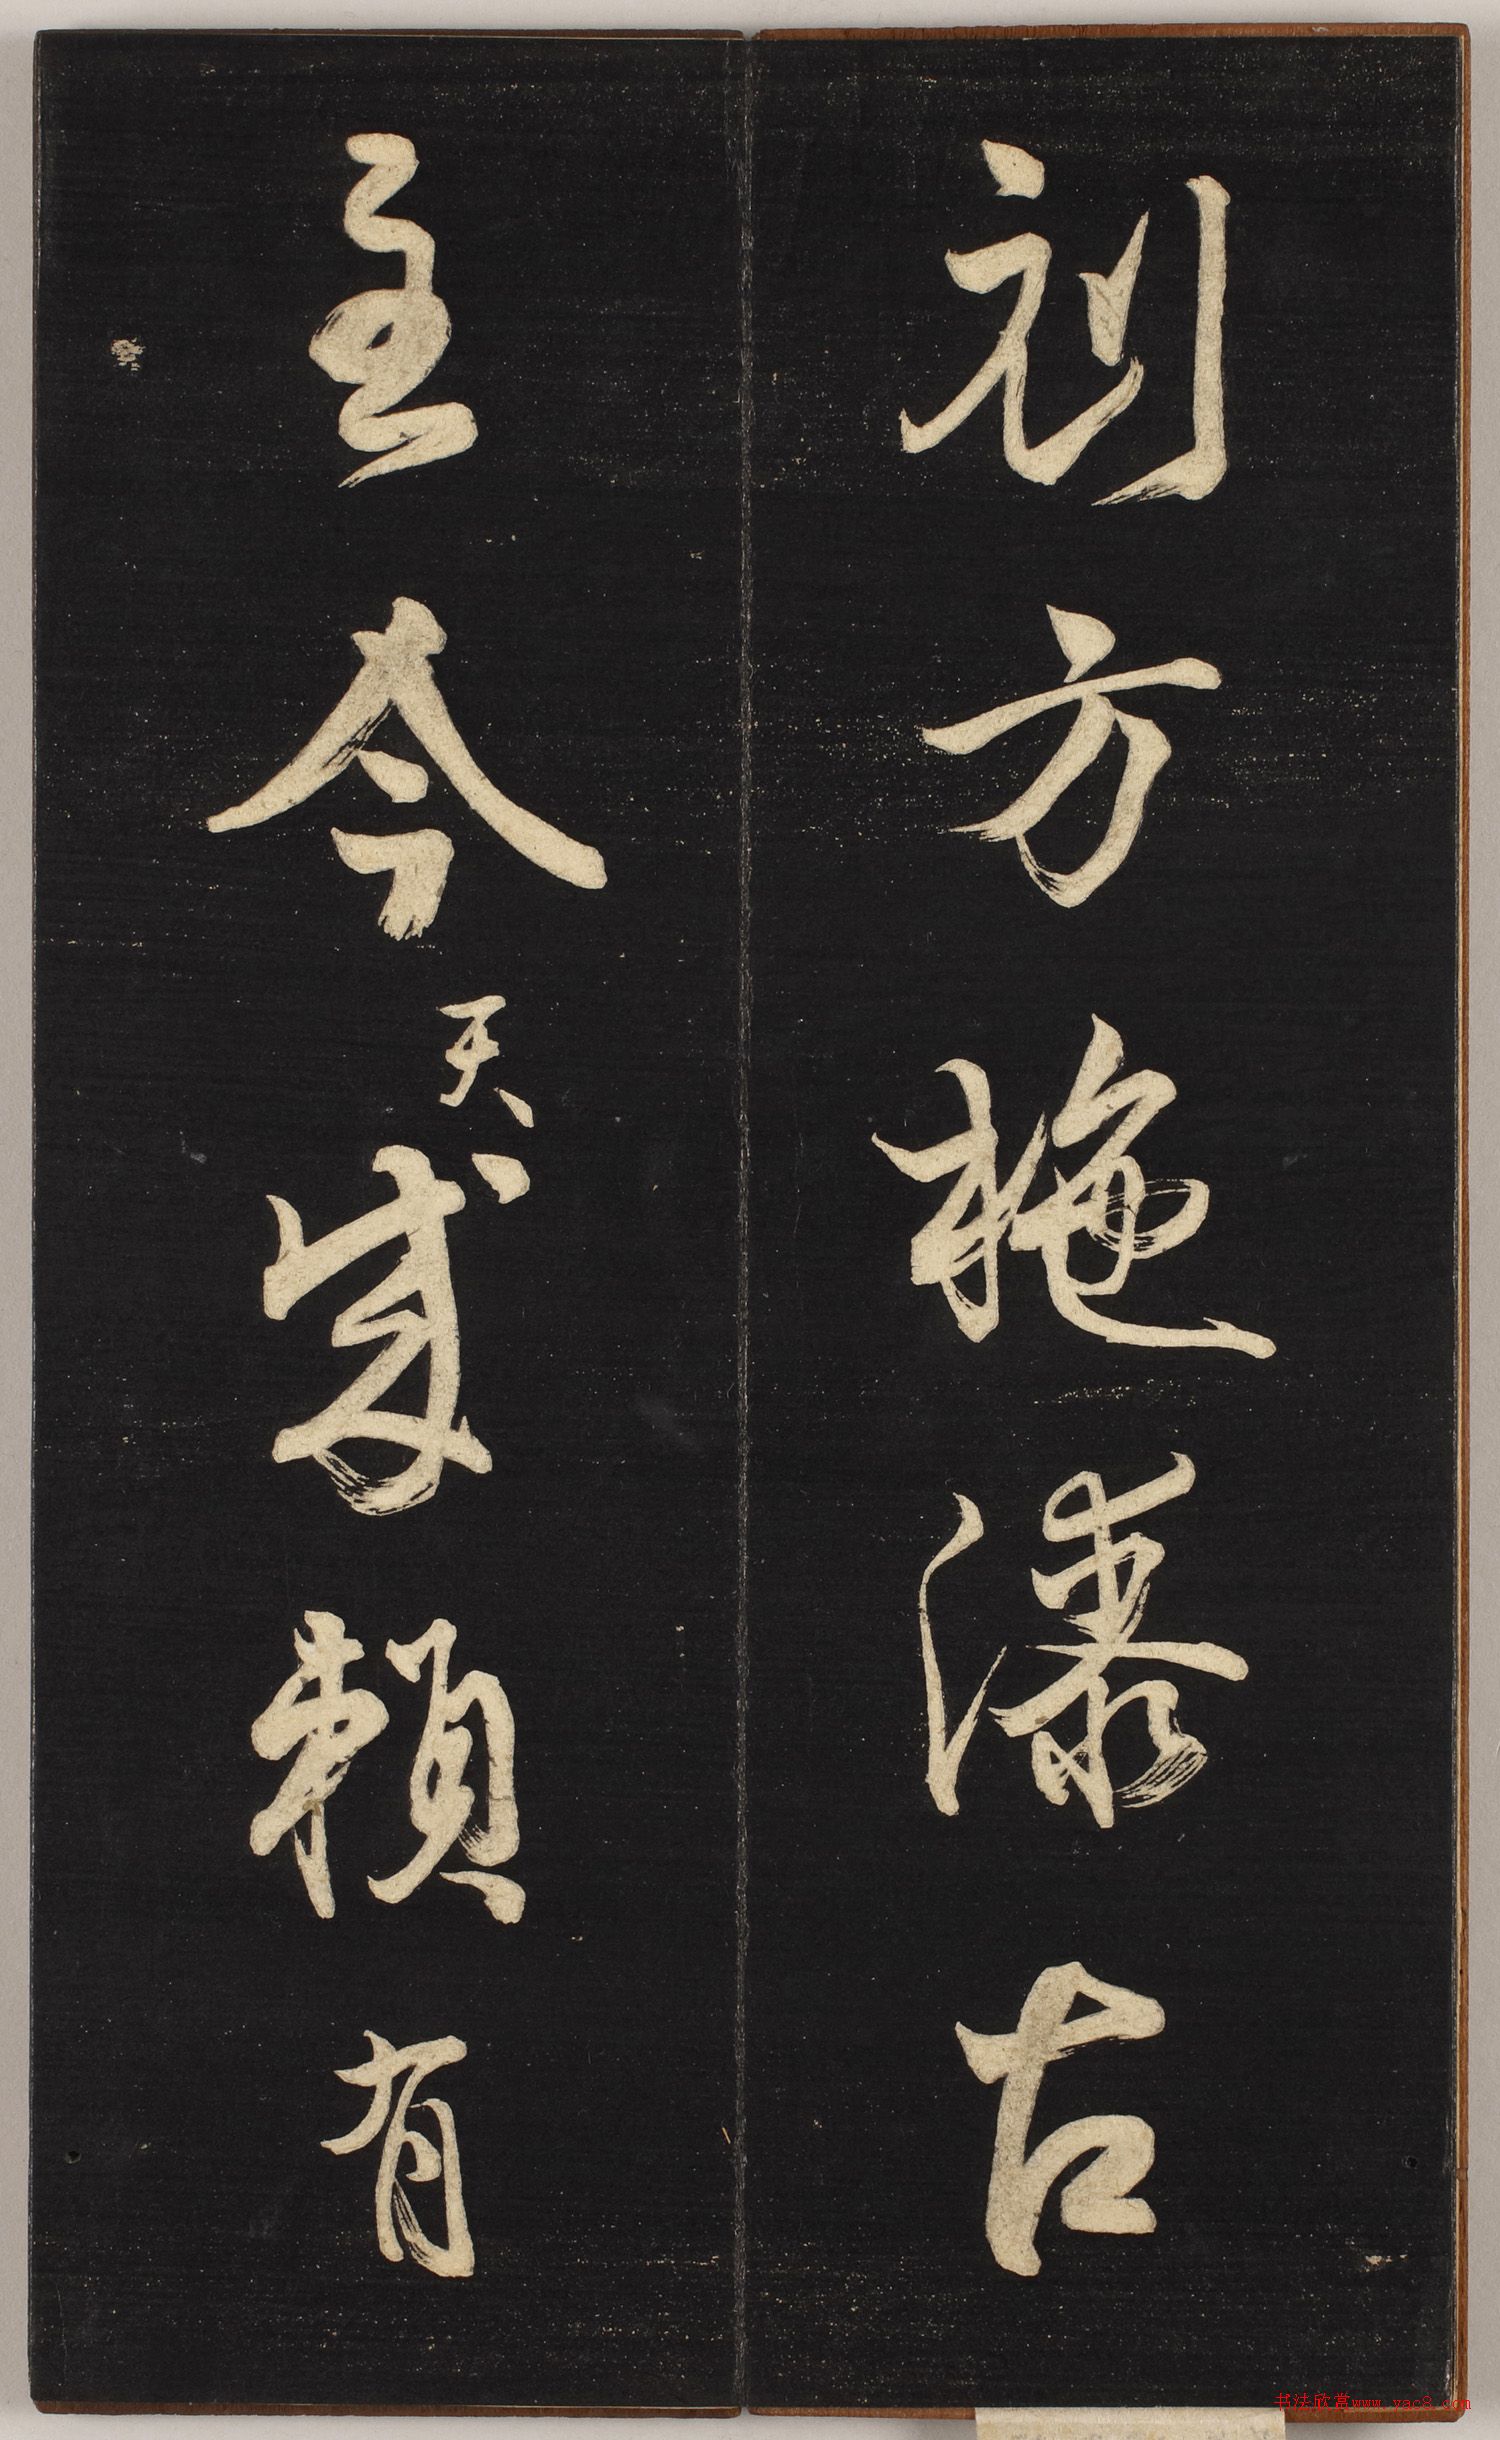 方拖瀑古
至今天賴有
书法欣赏www.yac8.com